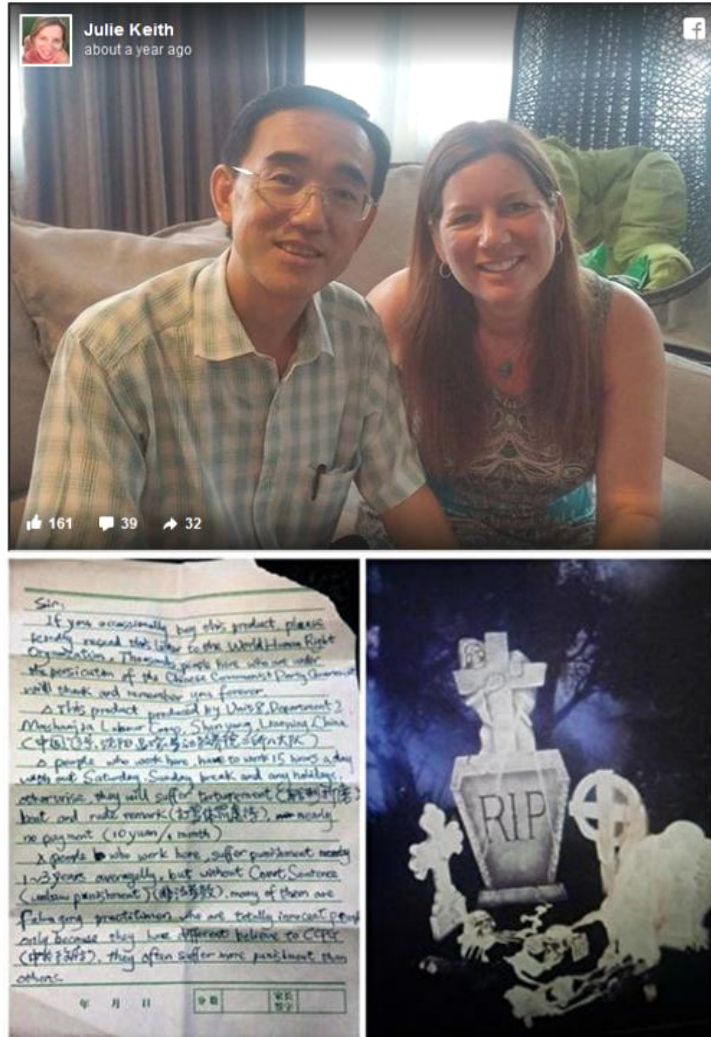 Julie Keith
about a year ago
161 39 32
Sir:
If you occassionally buy this product, please
kindly resend this letter to the World Human Right
Organization. Thousands people here who are under
the persicution of the Chinese Communist Party Government
will thank and remember you forever.
△ This product produced by Unit 8, Department 2,
Labour Camp, Shenyang, Liaoning, China
(中国,辽宁,沈阳
△ people who work here, have to work 15 hours a day
with out Saturday, Sunday break and any holidays,
otherwise, they will suffer torturement
beat and rude remark nearly
no payment (10 yuan/1 month)
△ people who work here, suffer punishment nearly
1~3 years averagely, but without Court Sentence
(unlaw punishment) many of them are
practitioner, who are totally innocent people
only because they have different believe to CCPG
they often suffer more punishment than
others.
年 月 日 分数 家长签字
RIP